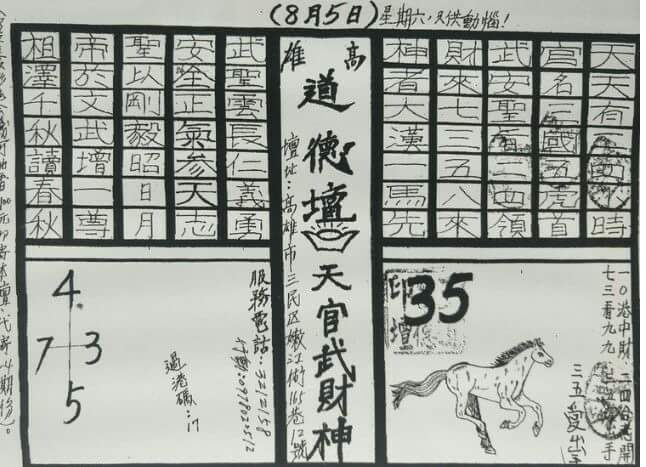 (8月5日)星期六,只供動惱!
天天有
時
官名三國五虎首
武安聖
西領
財來七三五八來
神者大漢一馬先
高雄
道德壇
天官武財神
壇址:高雄市三民区嫩江街165巷12號
武聖雲長仁義勇
安全正氣參天志
聖以剛毅昭日月
帝於文武增一尊
祖澤千秋讀春秋
一0港中財二四台
開
七三看九九
手
三五愛出
35
服務電話:3212158
行動:0978020512
過港碼:17
4
7
3
5